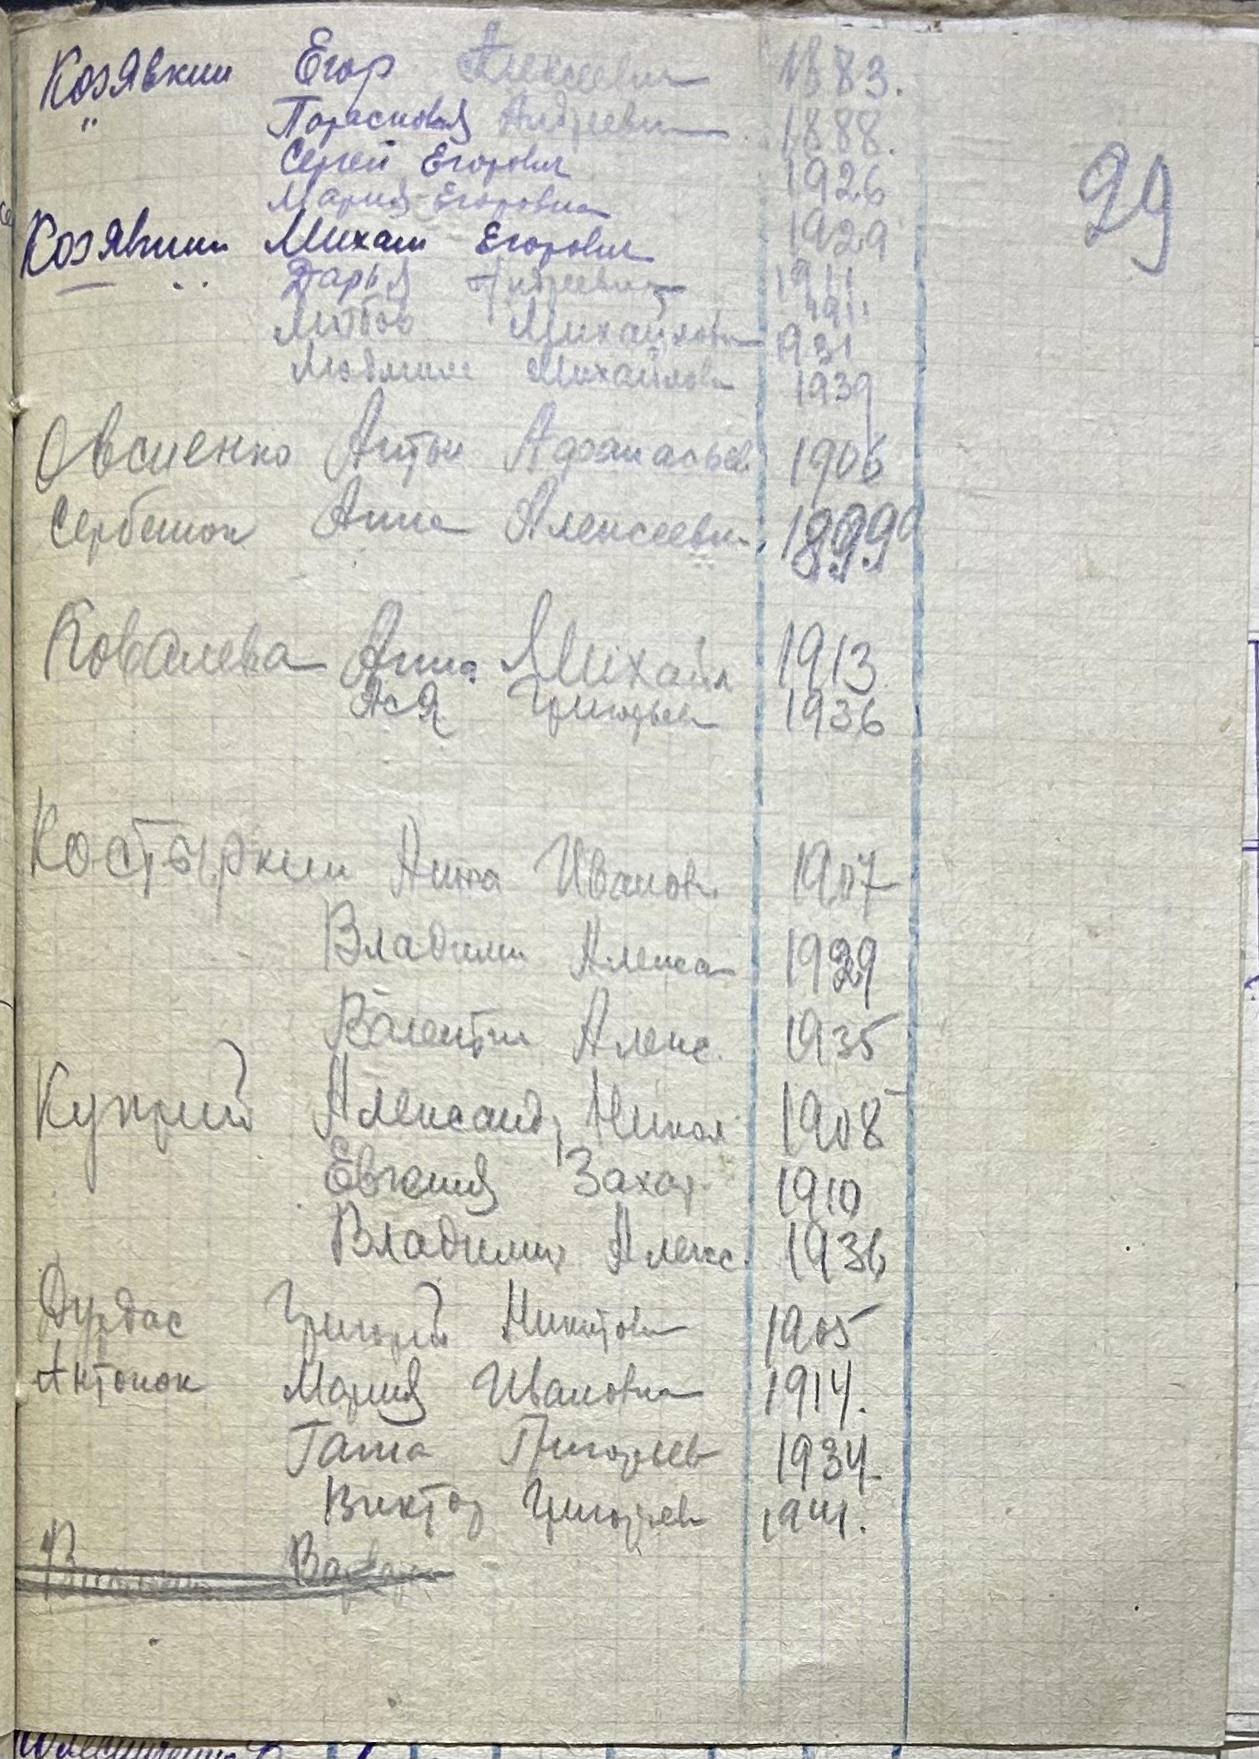 Козявкин Егор Алексеевич 1883.
" Парасковья Андреевна 1888.
Сергей Егорович 1926
Мария Егоровна 1929
Козявкин Михаил Егорович 1911
Дарья Андреевна 1911
Любов Михайловн 1931
Людмила Михайловн 1939
99
Овсиенко Антон Афанасьев 1906
Сербенюк Анна Алексеевн 1899
Ковалева Анна Михайл 1913
Ася Григорьев 1936
Костыркин Анна Иванов. 1907
Владимир Алекса 1929
Валентин Алекс. 1935
Куприй Александр Никол 1908
Евгения Захар. 1910
Владимир Алекс. 1936
Дурдас Григорий Никитович 1905
Антонюк Мария Ивановна 1914.
Галина Григорьев 1934
Виктор Григорьев 1941.
Варвара